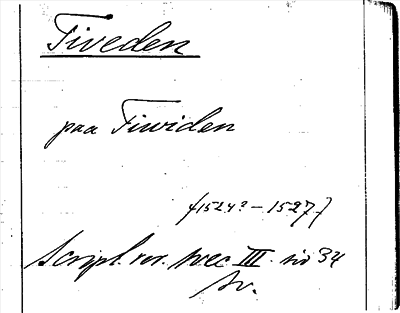 Fiveden
paa Fiwiden
(1524?-1527.)
Script. rer. svec III. sid 34
Sv.